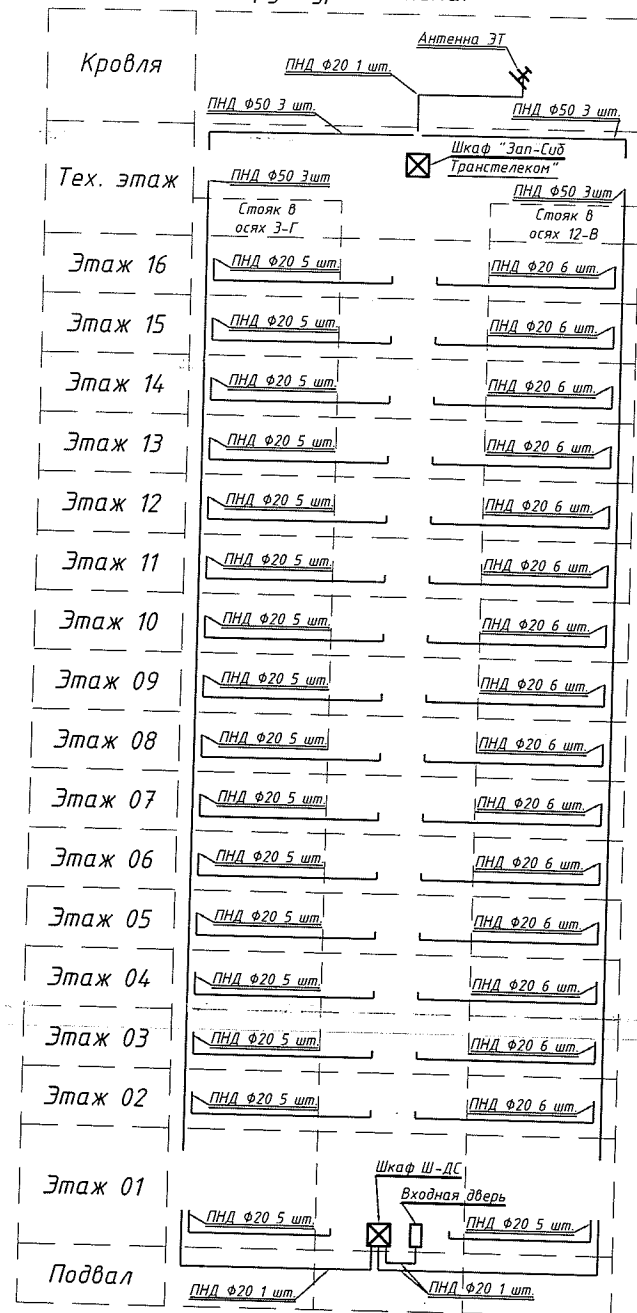 Кровля
Антенна ЭТ
ПНД Ф20 1 шт.
ПНД Ф50 3 шт.
ПНД Ф50 3 шт.
Шкаф "Зап-Сиб
Транстелеком"
Тех. этаж
ПНД Ф50 3шт
ПНД Ф50 3шт
Стояк в
осях 3-Г
Стояк в
осях 12-В
Этаж 16
ПНД Ф20 5 шт.
ПНД Ф20 6 шт.
Этаж 15
ПНД Ф20 5 шт.
ПНД Ф20 6 шт.
Этаж 14
ПНД Ф20 5 шт.
ПНД Ф20 6 шт.
Этаж 13
ПНД Ф20 5 шт.
ПНД Ф20 6 шт.
Этаж 12
ПНД Ф20 5 шт.
ПНД Ф20 6 шт.
Этаж 11
ПНД Ф20 5 шт.
ПНД Ф20 6 шт.
Этаж 10
ПНД Ф20 5 шт.
ПНД Ф20 6 шт.
Этаж 09
ПНД Ф20 5 шт.
ПНД Ф20 6 шт.
Этаж 08
ПНД Ф20 5 шт.
ПНД Ф20 6 шт.
Этаж 07
ПНД Ф20 5 шт.
ПНД Ф20 6 шт.
Этаж 06
ПНД Ф20 5 шт.
ПНД Ф20 6 шт.
Этаж 05
ПНД Ф20 5 шт.
ПНД Ф20 6 шт.
Этаж 04
ПНД Ф20 5 шт.
ПНД Ф20 6 шт.
Этаж 03
ПНД Ф20 5 шт.
ПНД Ф20 6 шт.
Этаж 02
ПНД Ф20 5 шт.
ПНД Ф20 6 шт.
Этаж 01
Шкаф Ш-ДС
Входная дверь
ПНД Ф20 5 шт.
ПНД Ф20 5 шт.
Подвал
ПНД Ф20 1 шт.
ПНД Ф20 1 шт.